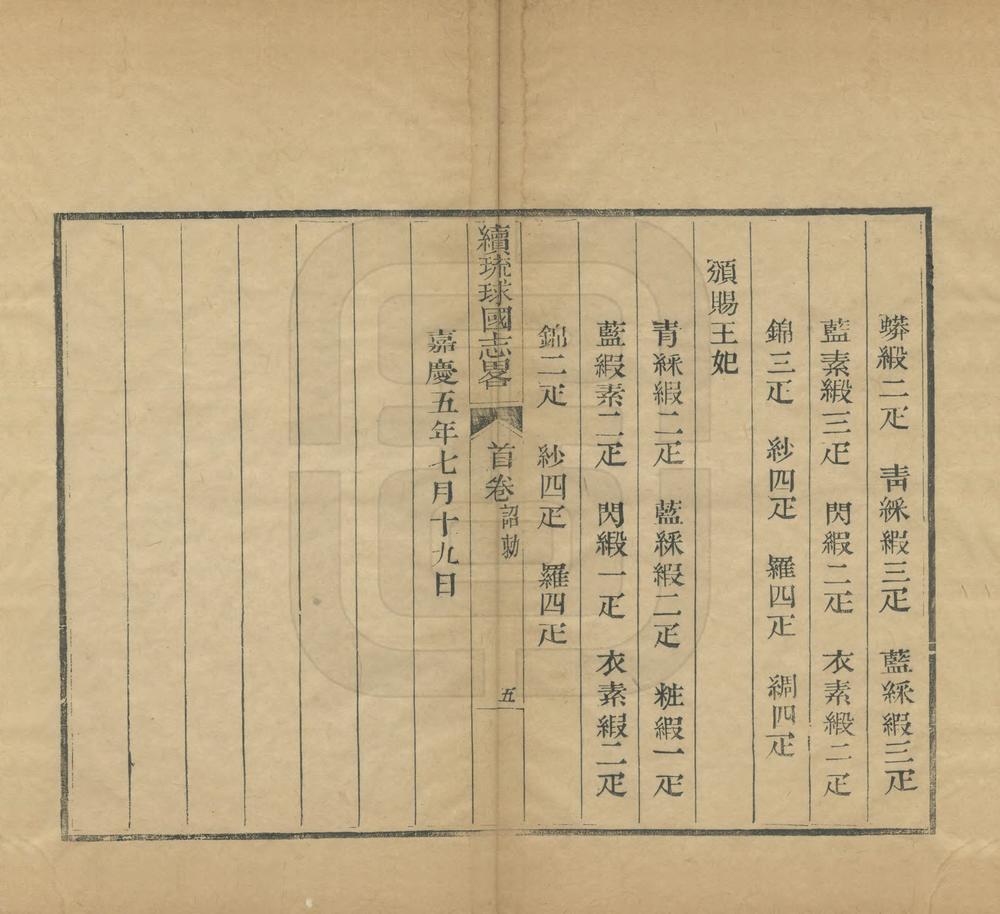 蟒緞二疋　青綵緞三疋　藍綵緞三疋
藍素緞三疋　閃緞二疋　衣素緞二疋
錦三疋　紗四疋　羅四疋　綢四疋
頒賜王妃
青綵緞二疋　藍綵緞二疋　粧緞一疋
藍緞素二疋　閃緞一疋　衣素緞二疋
錦二疋　紗四疋　羅四疋
續琉球國志畧　首卷　詔勅　五
嘉慶五年七月十九日